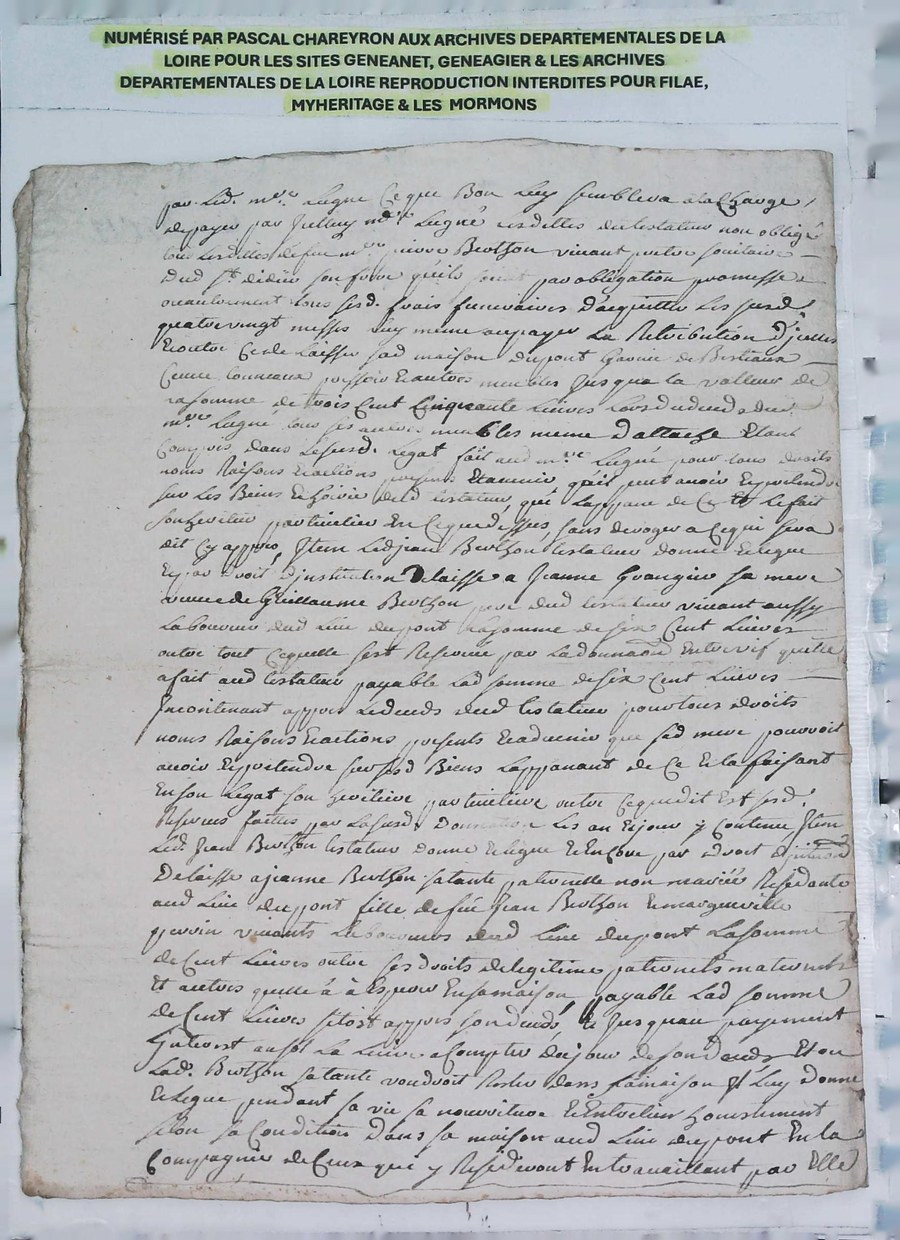 NUMÉRISÉ PAR PASCAL CHAREYRON AUX ARCHIVES DEPARTEMENTALES DE LA
LOIRE POUR LES SITES GENEANET, GENEAGIER & LES ARCHIVES
DEPARTEMENTALES DE LA LOIRE REPRODUCTION INTERDITES POUR FILAE,
MYHERITAGE & LES MORMONS
par Led. mre Lagne Ce que Bon Luy semblera a la Charge
de payer par Icelluy mre Lagné Les dettes du testateur non obligé
Les dittes de feu mre pierre Berthon vivant
Dud St didier son frere qu'ils par obligation promesse
tous sesd. frais funeraires D'acquitter Les susd
quatre vingt messes luy meme ou payer La Retribution D'jcelles
Et outre Ce de Laisser sad maison du pont Garnie de Bestiaux
Cuves tonneaux pressoir Et autres meubles Jusqua la valleur de
La somme de trois Cent Cinquante Livres Lors du deuds dud
mre Lagné tous ses autres meubles meme D'attache Etant
Compris dans Le susd. Legat fait aud mre Lagné pour tous droits
noms Raisons Et actions presens Et a venir qu'il peut avoir Et pretendre
sur Les Biens Et hoirie dud testateur, qui Lappane de Ce Et Le fait
son heritier particulier En Ce que dessus, sans devoger a Ce qui sera
dit Cy appres, Item Led jean Berthon testateur donne Et Legue
Et par droit D'institution Delaisse a Jeanne Grangier sa mere
veuve de Guillaume Berthon pere dud testateur vivant aussy
Laboureur dud Lieu du pont La somme de six Cent Livres
outre tout Ce quelle sest Reservée par La donnaon Entre vif quelle
a fait aud testateur payable Lad somme de six Cent Livres
Incontinant appres Le deuds dud testateur pour tous droits
noms Raisons Et actions presents Et a venir que sad mere pouvoit
avoir Et pretendre sur sesd Biens Lappanant de Ce Et La faisant
En son Legat son heritiere particuliere outre Ce que dit Est sesd.
Reserves faittes par La susd. Donnation Les an Et jour y Contenu Item
Led. Jean Berthon testateur donne Et Legue Et Encore par droit
Delaisse a jeanne Berthon sa tante paternelle non mariée Residante
aud Lieu du pont fille de feu Jean Berthon Et marguerite
perrin vivants Laboureurs dud Lieu du pont La somme
de Cent Livres outre ses droits de legitime paternels maternels
Et autres quelle a à Esperer En sa maison, payable Lad somme
de Cent Livres sitost appres son deuds, Et Jusquau payement
Interest au sol La Livre a Compter du jour de son deuds Et ou
Lad. Berthon sa tante voudroit Rester dans sa maison Il Luy donne
Et Legue pendant sa vie sa nourriture Et Entretien honestement
selon sa Condition Dans sa maison aud Lieu du pont En la
Compagnie de Ceux qui y Resideront En travaillant par Elle